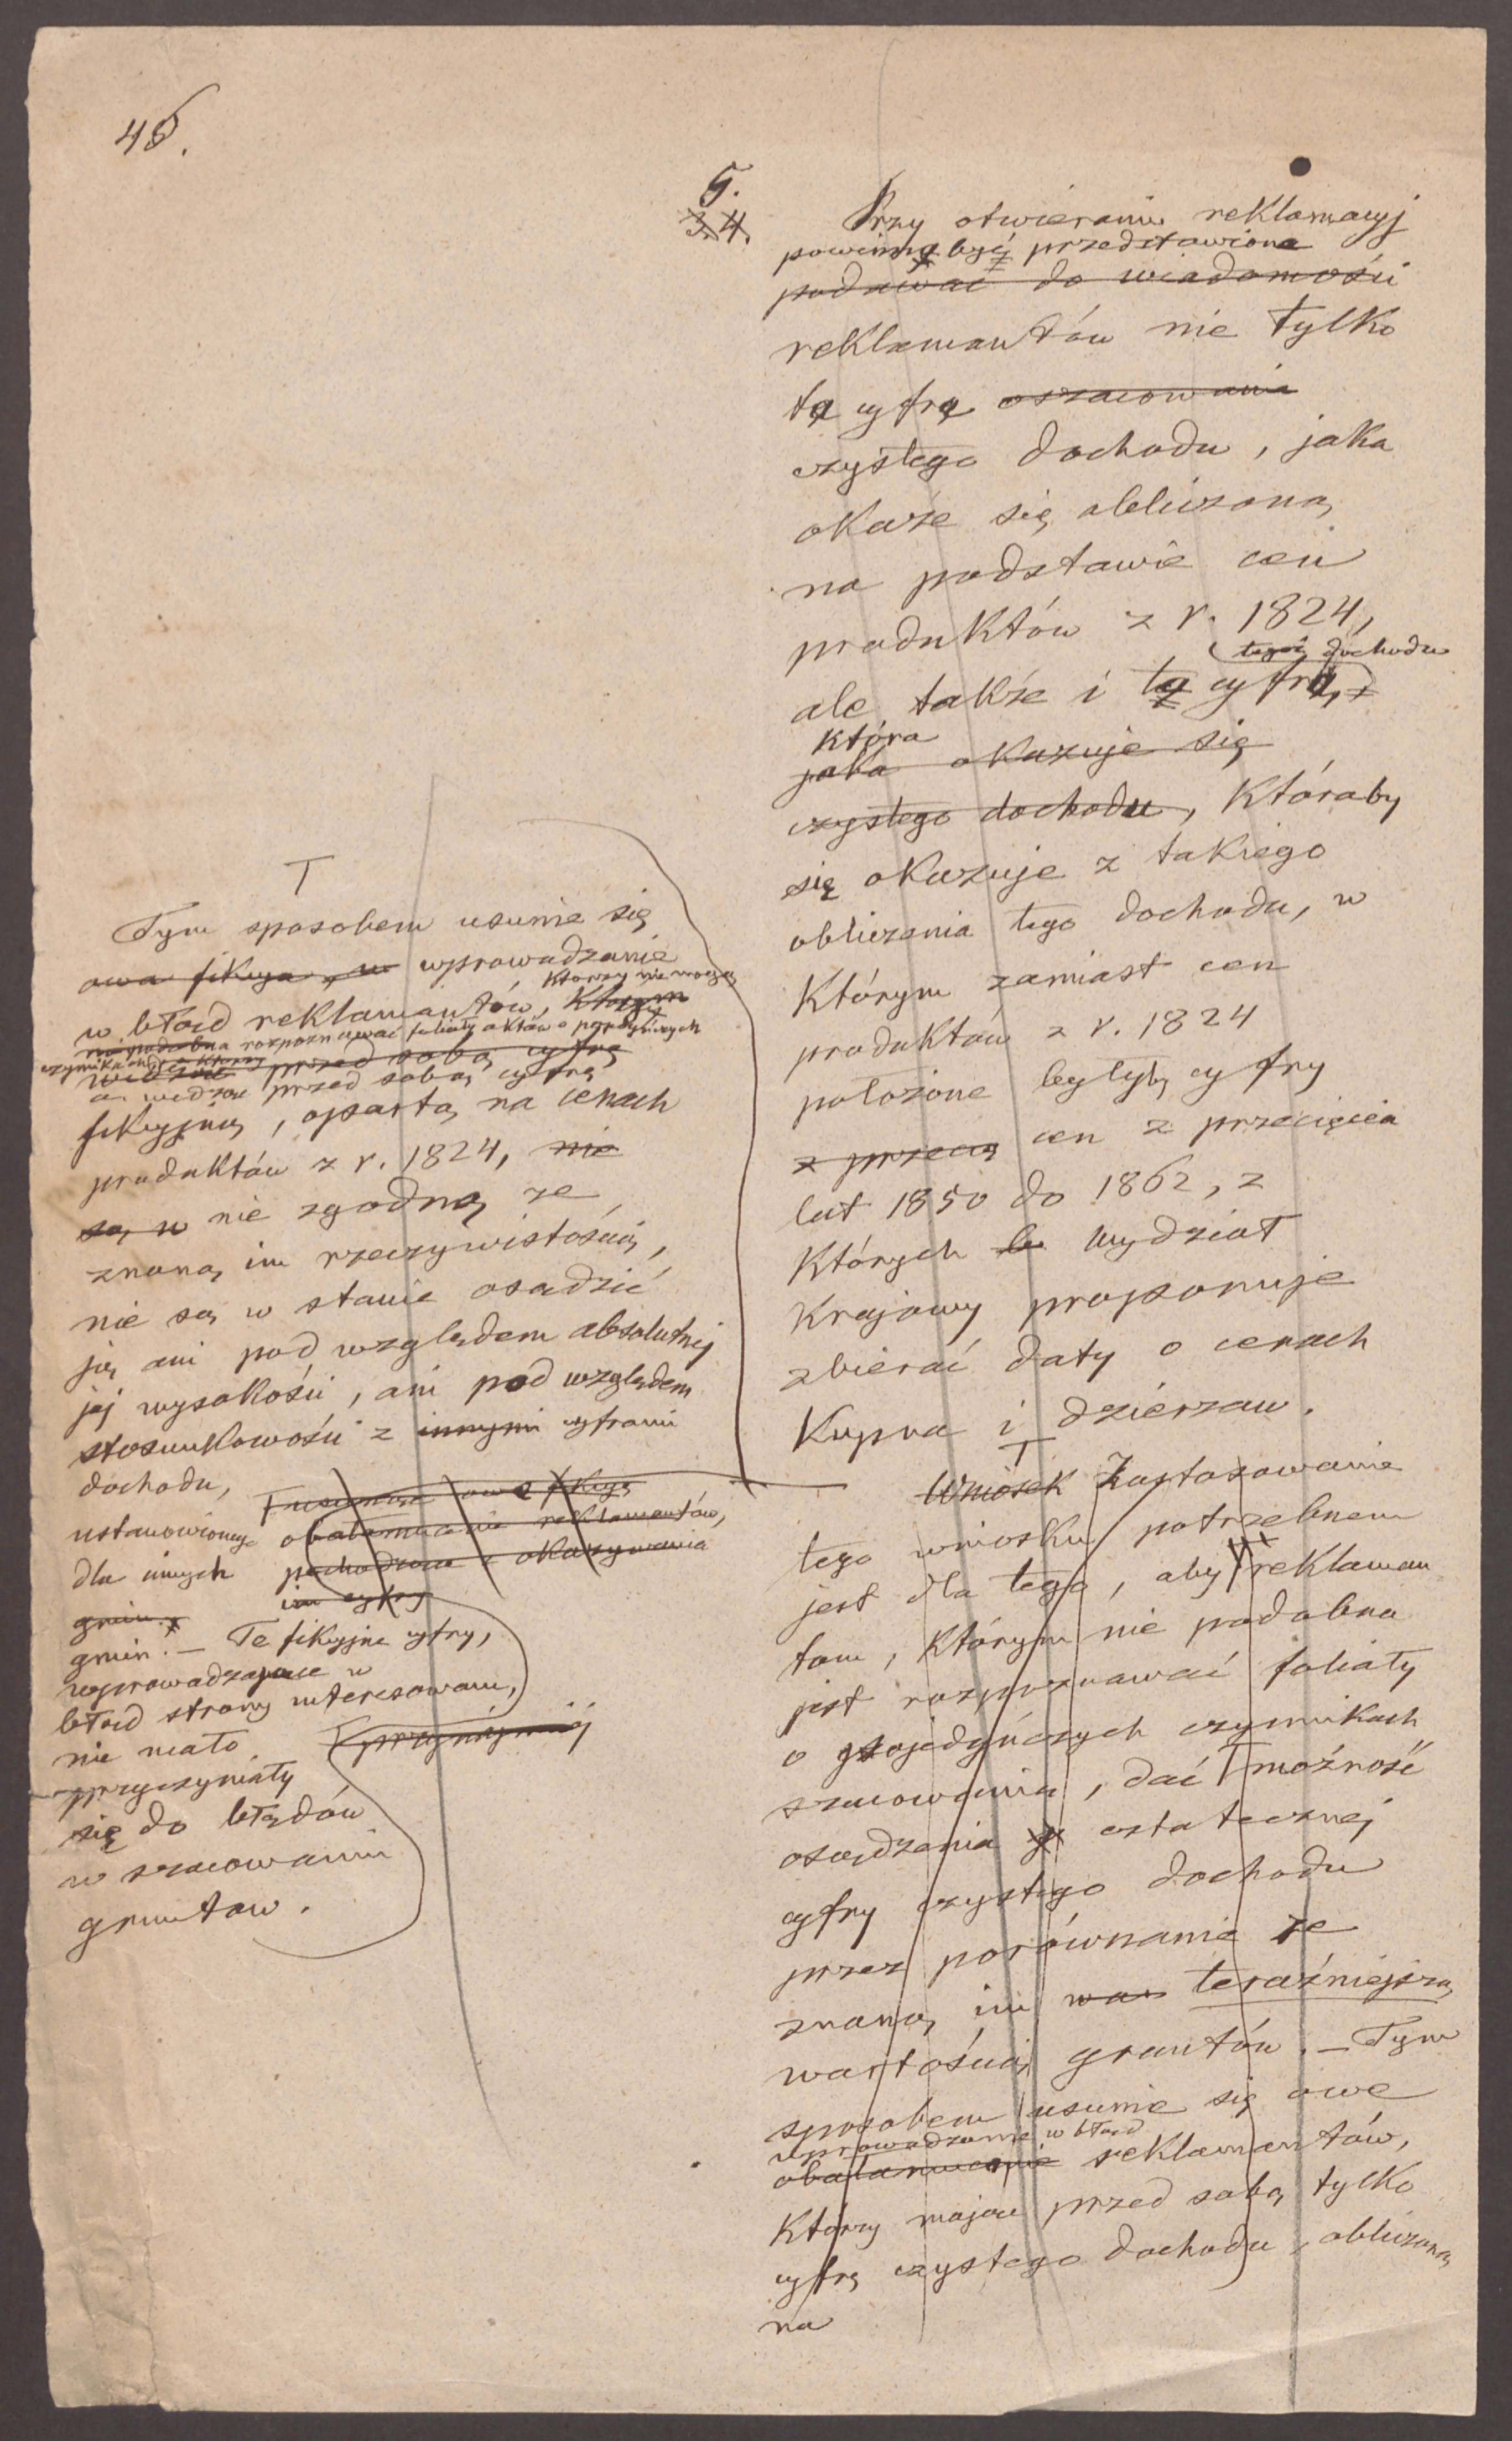 45.
5.
3. 4.
Przy otwieraniu reklamacyj
powinna być przedstawiona
podawać do wiadomości
reklamantów nie tylko
ta cyfra oszacowania
czystego dochodu, jaka
okaże się obliczoną
na podstawie cen
produktów z r. 1824,
tegoż dochodu
ale także i ta cyfra,
która
jaka okazuje się
czystego dochodu, któraby
się okazuje z takiego
obliczenia tego dochodu, w
którym zamiast cen
produktów z r. 1824
położone byłyby cyfry
z przecię cen z przecięcia
lat 1850 do 1862, z
których Wydział
Krajowy proponuje
zbierać daty o cenach
kupna i dzierżaw.
T
Wniosek Zastosowanie
tego wniosku potrzebnem
jest dla tego, aby reklaman
tom, którym nie podobna
jest rozpoznawać foliały
o pojedyńczych czynnikach
szacowania, dać możność
osądzenia ostatecznej
cyfry czystego dochodu
przez porównanie ze
znaną im war teraźniejszą
wartością gruntów. – Tym
sposobem usunie się owe
wprowadzanie w błąd
obałamucenie reklamantów,
którzy mając przed sobą tylko
cyfrę czystego dochodu, obliczoną
na
T
Tym sposobem usunie się
owa fikcya, w wprowadzanie
którzy nie mogąc
w błąd reklamantów, którym
niepodobna rozpoznawać foliały aktów o pojedyńczych
czynnikach
widząc przed sobą cyfrę
a widząc przed sobą cyfrę
fikcyjną, opartą na cenach
produktów z r. 1824, nie
są w nie zgodną ze
znaną im rzeczywistością,
nie są w stanie osądzić
ją ani pod względem absolutnej
jej wysokości, ani pod względem
stosunkowości z innymi cyframi
dochodu,
ustanowionego
dla innych
gmin.
gmin. – Te fikcyjne cyfry,
wprowadzające w
błąd strony interesowane,
nie mało
przyczyniały
się do błędów
w szacowaniu
gruntów.
obałamucenie reklamantów,
pochodzące z okazywania
im cyfry
przynajmniej